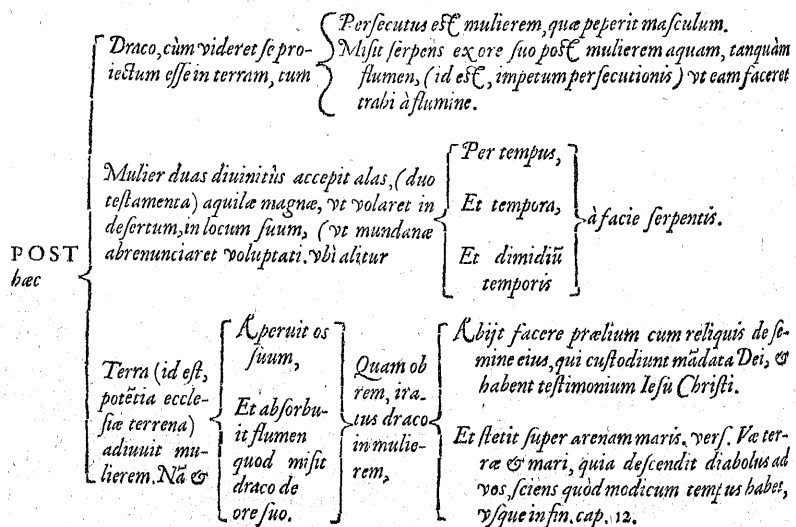 POST
hæc
Draco, cùm videret se pro-
iectum esse in terram, tum
Persecutus est mulierem, quæ peperit masculum.
Misit serpens ex ore suo post mulierem aquam, tanquàm
flumen, (id est, impetum persecutionis) vt eam faceret
trahi à flumine.
Mulier duas diuinitùs accepit alas, (duo
testamenta) aquilæ magnæ, vt volaret in
desertum, in locum suum, (vt mundanæ
abrenunciaret voluptati. vbi alitur
Per tempus,
Et tempora,
Et dimidiũ
temporis
à facie serpentis.
Terra (id est,
potẽtia eccle-
siæ terrena)
adiuuit mu-
lierem. Nã &
Aperuit os
suum,
Et absorbu-
it flumen
quod misit
draco de
ore suo.
Quam ob
rem, ira-
tus draco
in mulie-
rem,
Abijt facere prælium cum reliquis de se-
mine eius, qui custodiunt mãdata Dei, &
habent testimonium Iesu Christi.
Et stetit super arenam maris. vers. Væ ter-
ræ & mari, quia descendit diabolus ad
vos, sciens quòd modicum tempus habet,
vsque in fin. cap. 12.